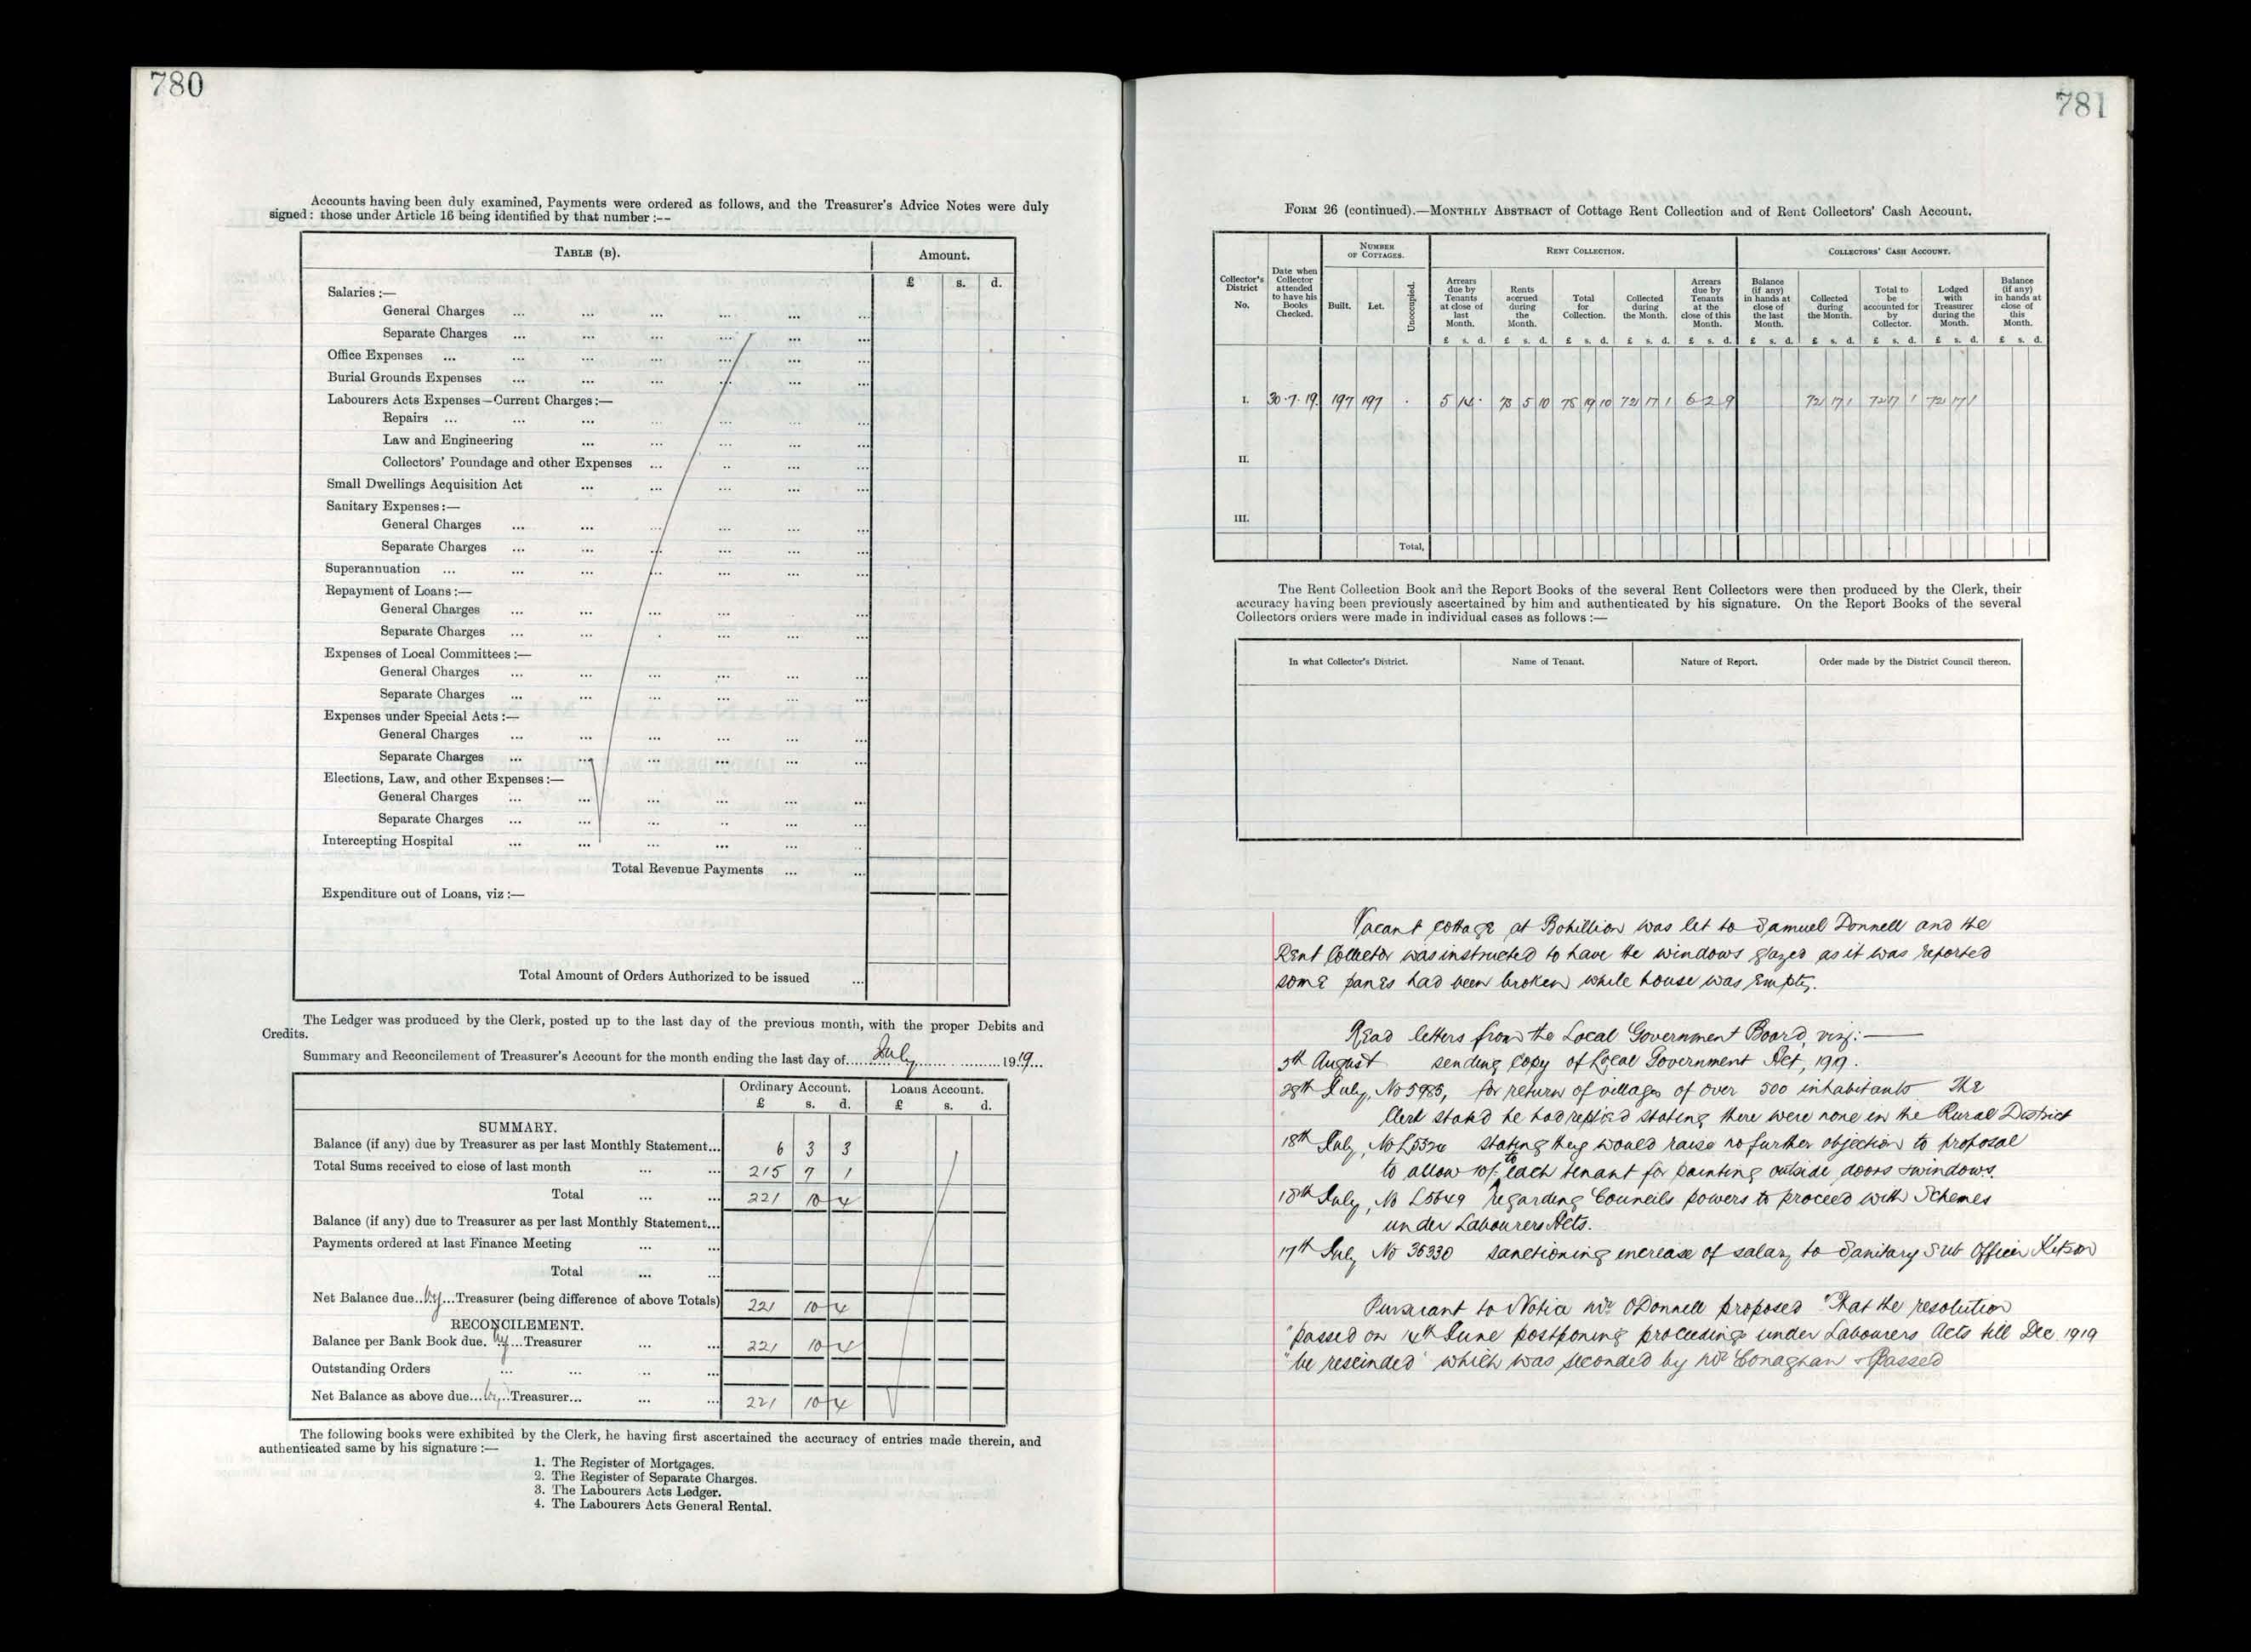 780
Accounts having been duly examined, Payments were ordered as follows, and the Treasurer's Advice Notes were duly
signed: those under Article 16 being identified by that number :--
TABLE (B). Amount.
£ s. d.
Salaries :—
General Charges ... ... ... ... ... ...
Separate Charges ... ... ... ... ... ...
Office Expenses ... ... ... ... ... ...
Burial Grounds Expenses ... ... ... ... ... ...
Labourers Acts Expenses—Current Charges :—
Repairs ... ... ... ... ... ...
Law and Engineering ... ... ... ... ...
Collectors' Poundage and other Expenses ... ... ... ...
Small Dwellings Acquisition Act ... ... ... ... ...
Sanitary Expenses :—
General Charges ... ... ... ... ... ...
Separate Charges ... ... ... ... ... ...
Superannuation ... ... ... ... ... ... ...
Repayment of Loans :—
General Charges ... ... ... ... ... ...
Separate Charges ... ... . ... ... ...
Expenses of Local Committees :—
General Charges ... ... ... ... ... ...
Separate Charges ... ... ... ... ... ...
Expenses under Special Acts :—
General Charges ... ... ... ... ... ...
Separate Charges ... ... ... ... ... ...
Elections, Law, and other Expenses :—
General Charges ... ... ... ... ... ...
Separate Charges ... ... ... ... ... ...
Intercepting Hospital ... ... ... ... ... ...
Total Revenue Payments ... ...
Expenditure out of Loans, viz :—
Total Amount of Orders Authorized to be issued ...
The Ledger was produced by the Clerk, posted up to the last day of the previous month, with the proper Debits and
Credits.
Summary and Reconcilement of Treasurer's Account for the month ending the last day of July 1919
Ordinary Account. Loans Account.
£ s. d. £ s. d.
SUMMARY.
Balance (if any) due by Treasurer as per last Monthly Statement... 6 3 3
Total Sums received to close of last month ... ... 215 7 1
Total ... ... 221 10 4
Balance (if any) due to Treasurer as per last Monthly Statement...
Payments ordered at last Finance Meeting ... ...
Total ... ...
Net Balance due...by...Treasurer (being difference of above Totals) 221 10 4
RECONCILEMENT.
Balance per Bank Book due. by...Treasurer ... ... 221 10 4
Outstanding Orders ... ... ... ...
Net Balance as above due...by...Treasurer... ... ... 221 10 4
The following books were exhibited by the Clerk, he having first ascertained the accuracy of entries made therein, and
authenticated same by his signature :—
1. The Register of Mortgages.
2. The Register of Separate Charges.
3. The Labourers Acts Ledger.
4. The Labourers Acts General Rental.
781
FORM 26 (continued).—MONTHLY ABSTRACT of Cottage Rent Collection and of Rent Collectors' Cash Account.
Collector's District No.
Date when Collector attended to have his Books Checked.
NUMBER OF COTTAGES.
Built. Let. Unoccupied.
RENT COLLECTION.
Arrears due by Tenants at close of last Month.
Rents accrued during the Month.
Total for Collection.
Collected during the Month.
Arrears due by Tenants at the close of this Month.
COLLECTORS' CASH ACCOUNT.
Balance (if any) in hands at close of the last Month.
Collected during the Month.
Total to be accounted for by Collector.
Lodged with Treasurer during the Month.
Balance (if any) in hands at close of this Month.
£ s. d. £ s. d. £ s. d. £ s. d. £ s. d. £ s. d. £ s. d. £ s. d. £ s. d. £ s. d.
I. 30.7.19. 197 197 . 5 14 . 73 5 10 78 19 10 72 17 1 6 2 9 72 17 1 72 17 1 72 17 1
II.
III.
Total,
The Rent Collection Book and the Report Books of the several Rent Collectors were then produced by the Clerk, their
accuracy having been previously ascertained by him and authenticated by his signature. On the Report Books of the several
Collectors orders were made in individual cases as follows :—
In what Collector's District. Name of Tenant. Nature of Report. Order made by the District Council thereon.
Vacant Cottage at Bohillion was let to Samuel Donnell and the
Rent Collector was instructed to have the windows glazed as it was reported
some panes had been broken while house was empty.
Read letters from the Local Government Board, viz:—
5th August sending copy of Local Government Act, 1919.
28th July, No 5985, for return of villages of over 500 inhabitants The
Clerk stated he had replied stating there were none in the Rural District
18th July, No stating they would raise no further objection to proposal
to allow 10/- to each tenant for painting outside doors & windows.
18th July, No L5649 regarding Councils powers to proceed with Schemes
under Labourers Acts.
17th July No 35330 sanctioning increase of salary to Sanitary Sub Officer
Pursuant to Notice Mr O'Donnell proposed "That the resolution
"passed on 14th June postponing proceedings under Labourers Acts till Dec 1919
"be rescinded" which was seconded by Mr Conaghan & Passed